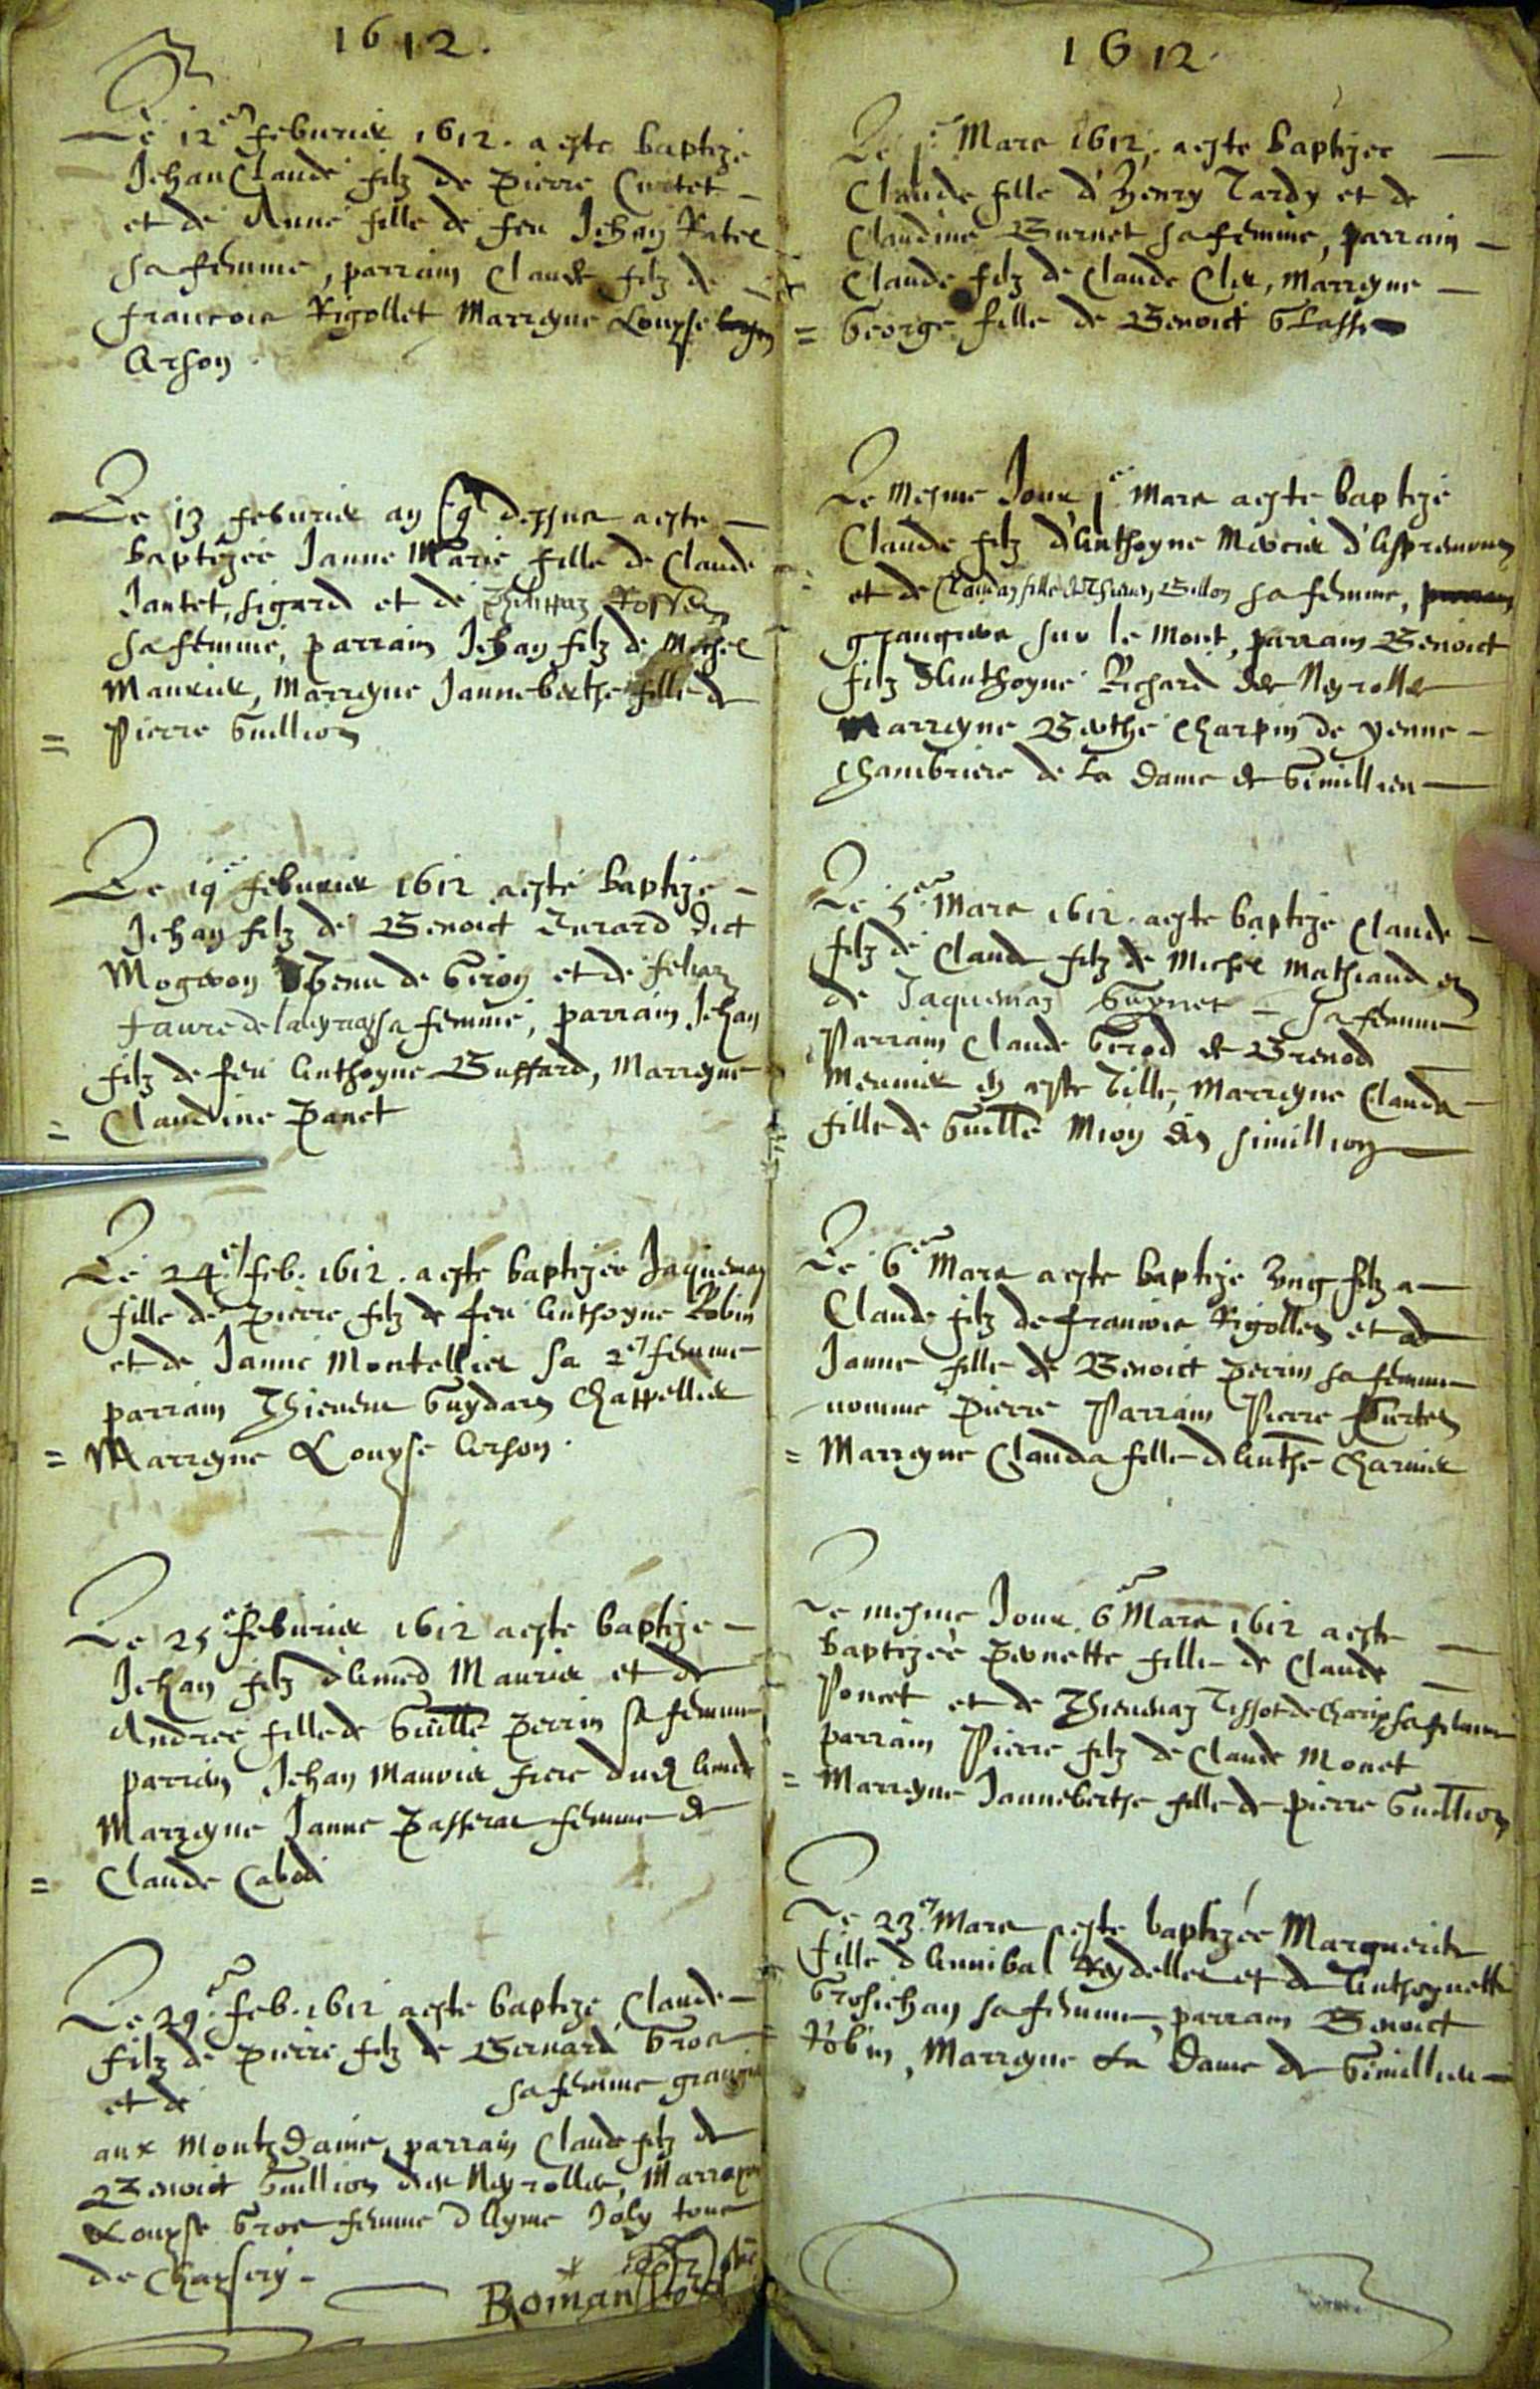 1612.
Le 12e feburier 1612. a este baptize
Jehan Claude filz de Pierre Curtet
et de Anne fille de feu Jehan Ratel
sa femme, parrain Claude filz de
Francois Rigollet Marreyne Louyse
Arson.
Le 13 feburier an dessus a este
baptizée Janne Marie fille de Claude
Jantet, sigard et de Thienaz
sa femme, parrain Jehan filz de Michel
Maurier, Marreyne Janneberthe fille de
Pierre Guillion
Le 19e feburier 1612 a esté baptize
Jehan filz de Benoict Durard dict
Mogeon de Giron et de
Faure sa femme, parrain Jehan
filz de feu Anthoyne Buffard, Marreyne
Claudine Panet
Le 24e feb. 1612. a este baptizée Jaquemaz
fille de Pierre filz de feu Anthoyne Robin
et de Janne Montellier sa 2e femme
parrain Thievent Guydard Chappellier
Marreyne Louyse Arson.
Le 25e feburier 1612 a este baptize
Jehan filz d'Amed Maurier et de
Andree fille de Guille Perrin sa femme
parrain Jehan Maurier frere dud Amed
Marreyne Janne Passerat femme de
Claude Cabod
Le 29e feb. 1612 a este baptize Claude
filz de Pierre filz de Bernard Gros
et de sa femme grangier
aux Montz Daine, parrain Claude filz de
Benoict Guillion des Neyrolles, Marreyne
Louyse Gros femme d'Ayme Joly tous
de Charsery
Roman
1612.
Le 1e Mars 1612. a este baptizee
Claude fille d'Henry Tardy et de
Claudine Burnet sa femme, parrain
Claude filz de Claude Cler, Marreyne
George fille de Benoict
Le mesme Jour 1e Mars a este baptizé
Claude filz d'Anthoyne Mercier d'Aspremont
et de Claudaz fille de Thievent Billon sa femme,
grangiers sur le Mont, parrain Benoict
filz d'Anthoyne Richard des Neyrolles
Marreyne Berthe Charpin de yenne
chambriere de La Dame de Gimillieu
Le 5e Mars 1612. a este baptize Claude
filz de Claude filz de Michel Mathiaud et
de Jaquemaz Guynet sa femme
Parrain Claude Girod de Brenod
Meunier en ceste Ville, Marreyne Clauda
fille de Guille Mion dit Simillion
Le 6e Mars a este baptize Ung filz a
Claude filz de Francois Rigollet et a
Janne fille de Benoict Perrin sa femme
nomme Pierre Parrain Pierre Curtet
Marreyne Clauda fille d'Anthe Charnier
Le mesme Jour 6e Mars 1612 a este
baptizée Pernette fille de Claude
Poncet et de Thievenaz Tissot de Charix sa femme
parrain Pierre filz de Claude Monet
Marreyne Janneberthe fille de Pierre Guillion
Le 23e Mars a este baptizée Marguerite
fille d'Annibal Reydellet et de Anthoynette
Grosjehan sa femme, parrain Benoict
Robin, Marreyne La Dame de Gimillieu